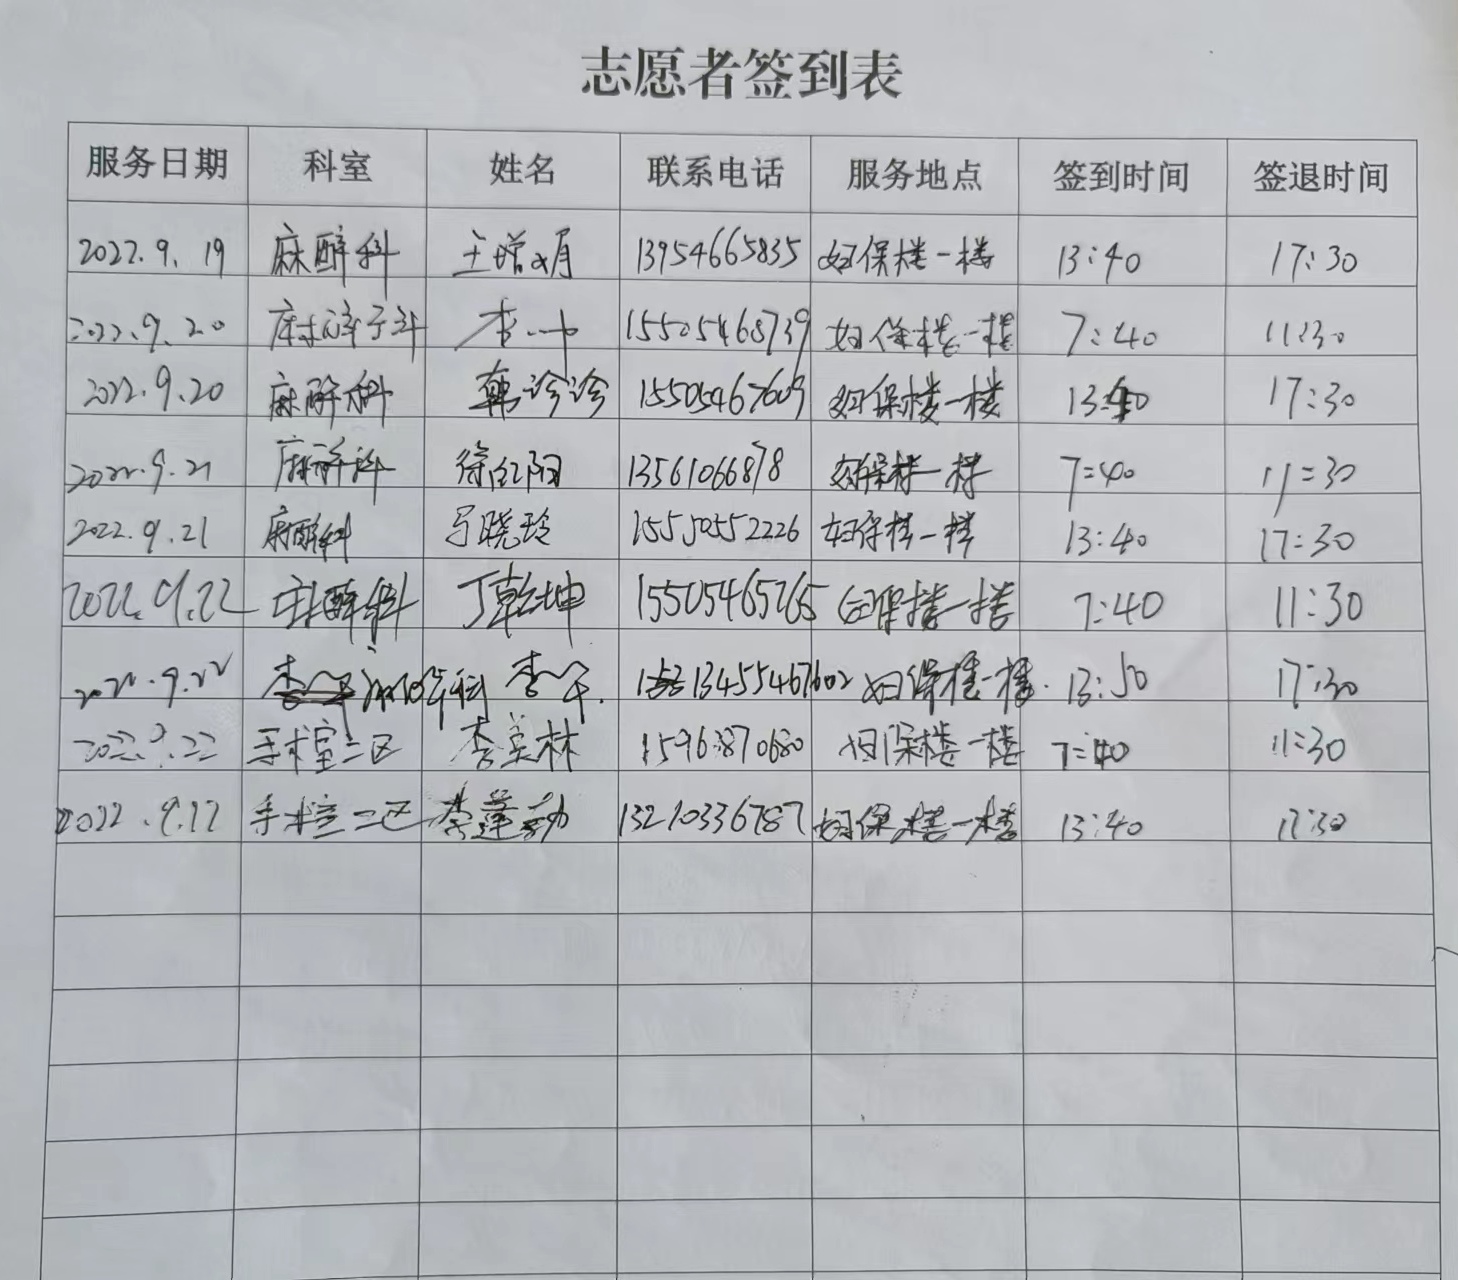 志愿者签到表
服务日期 科室 姓名 联系电话 服务地点 签到时间 签退时间
2022.9.19 麻醉科 王增娟 13954665835 妇保楼一楼 13:40 17:30
2022.9.20 麻醉科 李一中 15505468739 妇保楼一楼 7:40 11:30
2022.9.20 麻醉科 韩诊诊 15505467609 妇保楼一楼 13:40 17:30
2022.9.21 麻醉科 徐红阳 13561066878 妇保楼一楼 7:40 11:30
2022.9.21 麻醉科 马晓玲 15550552226 妇保楼一楼 13:40 17:30
2022.9.22 麻醉科 丁乾坤 15505465765 妇保楼一楼 7:40 11:30
2022.9.22 麻醉科 李 13455467602 妇保楼一楼. 13:50 17:30
2022.9.22 手术室二区 李美林 15963870680 妇保楼一楼 7:40 11:30
2022.9.22 手术室二区 李莲 13210336787 妇保楼一楼 13:40 17:30